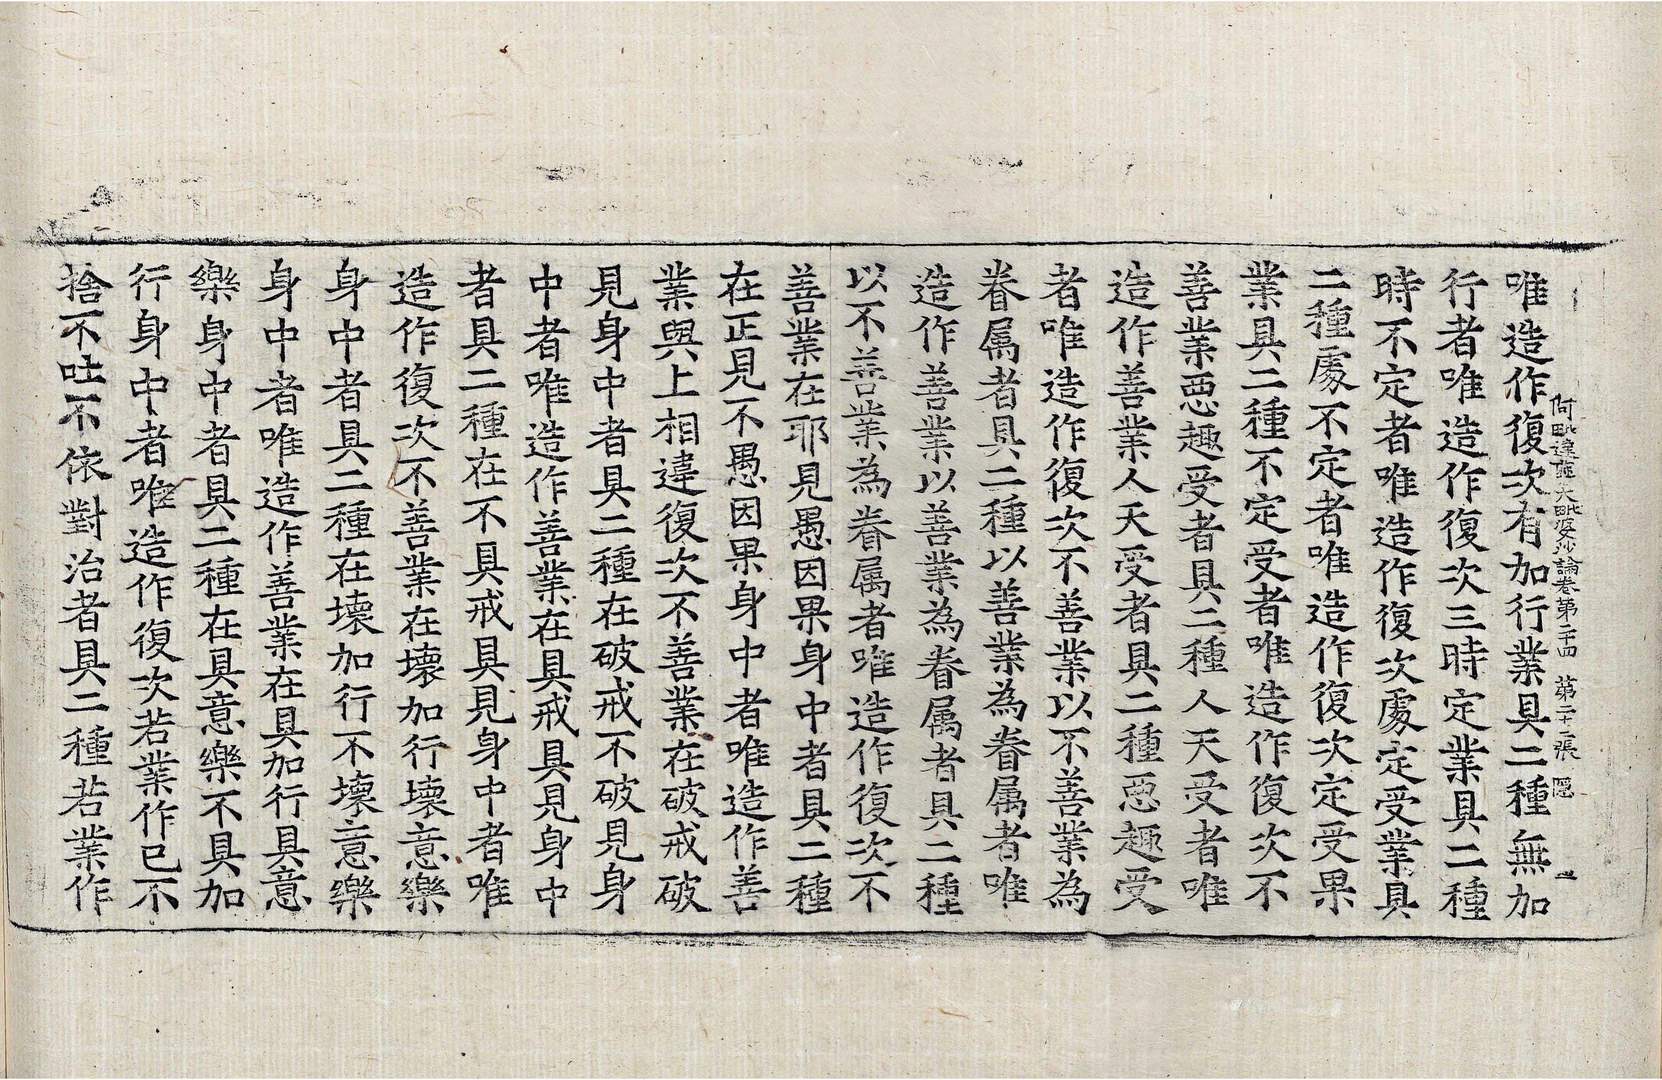 阿毗達磨大毗婆沙論卷第二十四 第二十二張 隱
唯造作復次有加行業具二種無加
行者唯造作復次三時定業具二種
時不定者唯造作復次處定受業具
二種處不定者唯造作復次定受果
業具二種不定受者唯造作復次不
善業惡趣受者具二種人天受者唯
造作善業人天受者具二種惡趣受
者唯造作復次不善業以不善業為
眷属者具二種以善業為眷属者唯
造作善業以善業為眷属者具二種
以不善業為眷属者唯造作復次不
善業在耶見愚因果身中者具二種
在正見不愚因果身中者唯造作善
業與上相違復次不善業在破戒破
見身中者具二種在破戒不破見身
中者唯造作善業在具戒具見身中
者具二種在不具戒具見身中者唯
造作復次不善業在壞加行壞意樂
身中者具二種在壞加行不壞意樂
身中者唯造作善業在具加行具意
樂身中者具二種在具意樂不具加
行身中者唯造作復次若業作已不
捨不吐不依對治者具二種若業作